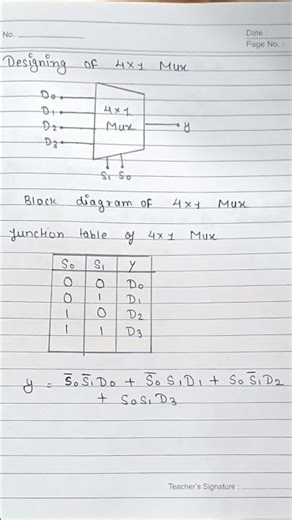 No.
Date :
Page No. :
Designing of 4x1 Mux
D₀
D₁
D₂
D₃
4x1
Mux
y
S₁ S₀
Block diagram of 4x1 Mux
function table of 4x1 Mux
S₀ S₁ Y
0 0 D₀
0 1 D₁
1 0 D₂
1 1 D₃
y = S̅₀S̅₁D₀ + S̅₀S₁D₁ + S₀S̅₁D₂
+ S₀S₁D₃
Teacher's Signature :